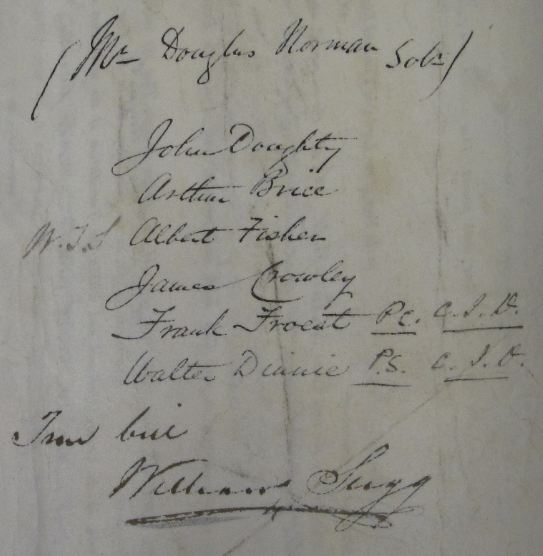 (Mr Douglas Norman Solr)
John Doughty
Arthur Brice
W.T.S Albert Fisher
James Crowley
Frank Froest P.C. C.I.D.
Walter Dinnie P.S. C.I.D.
True bill
William Sugg